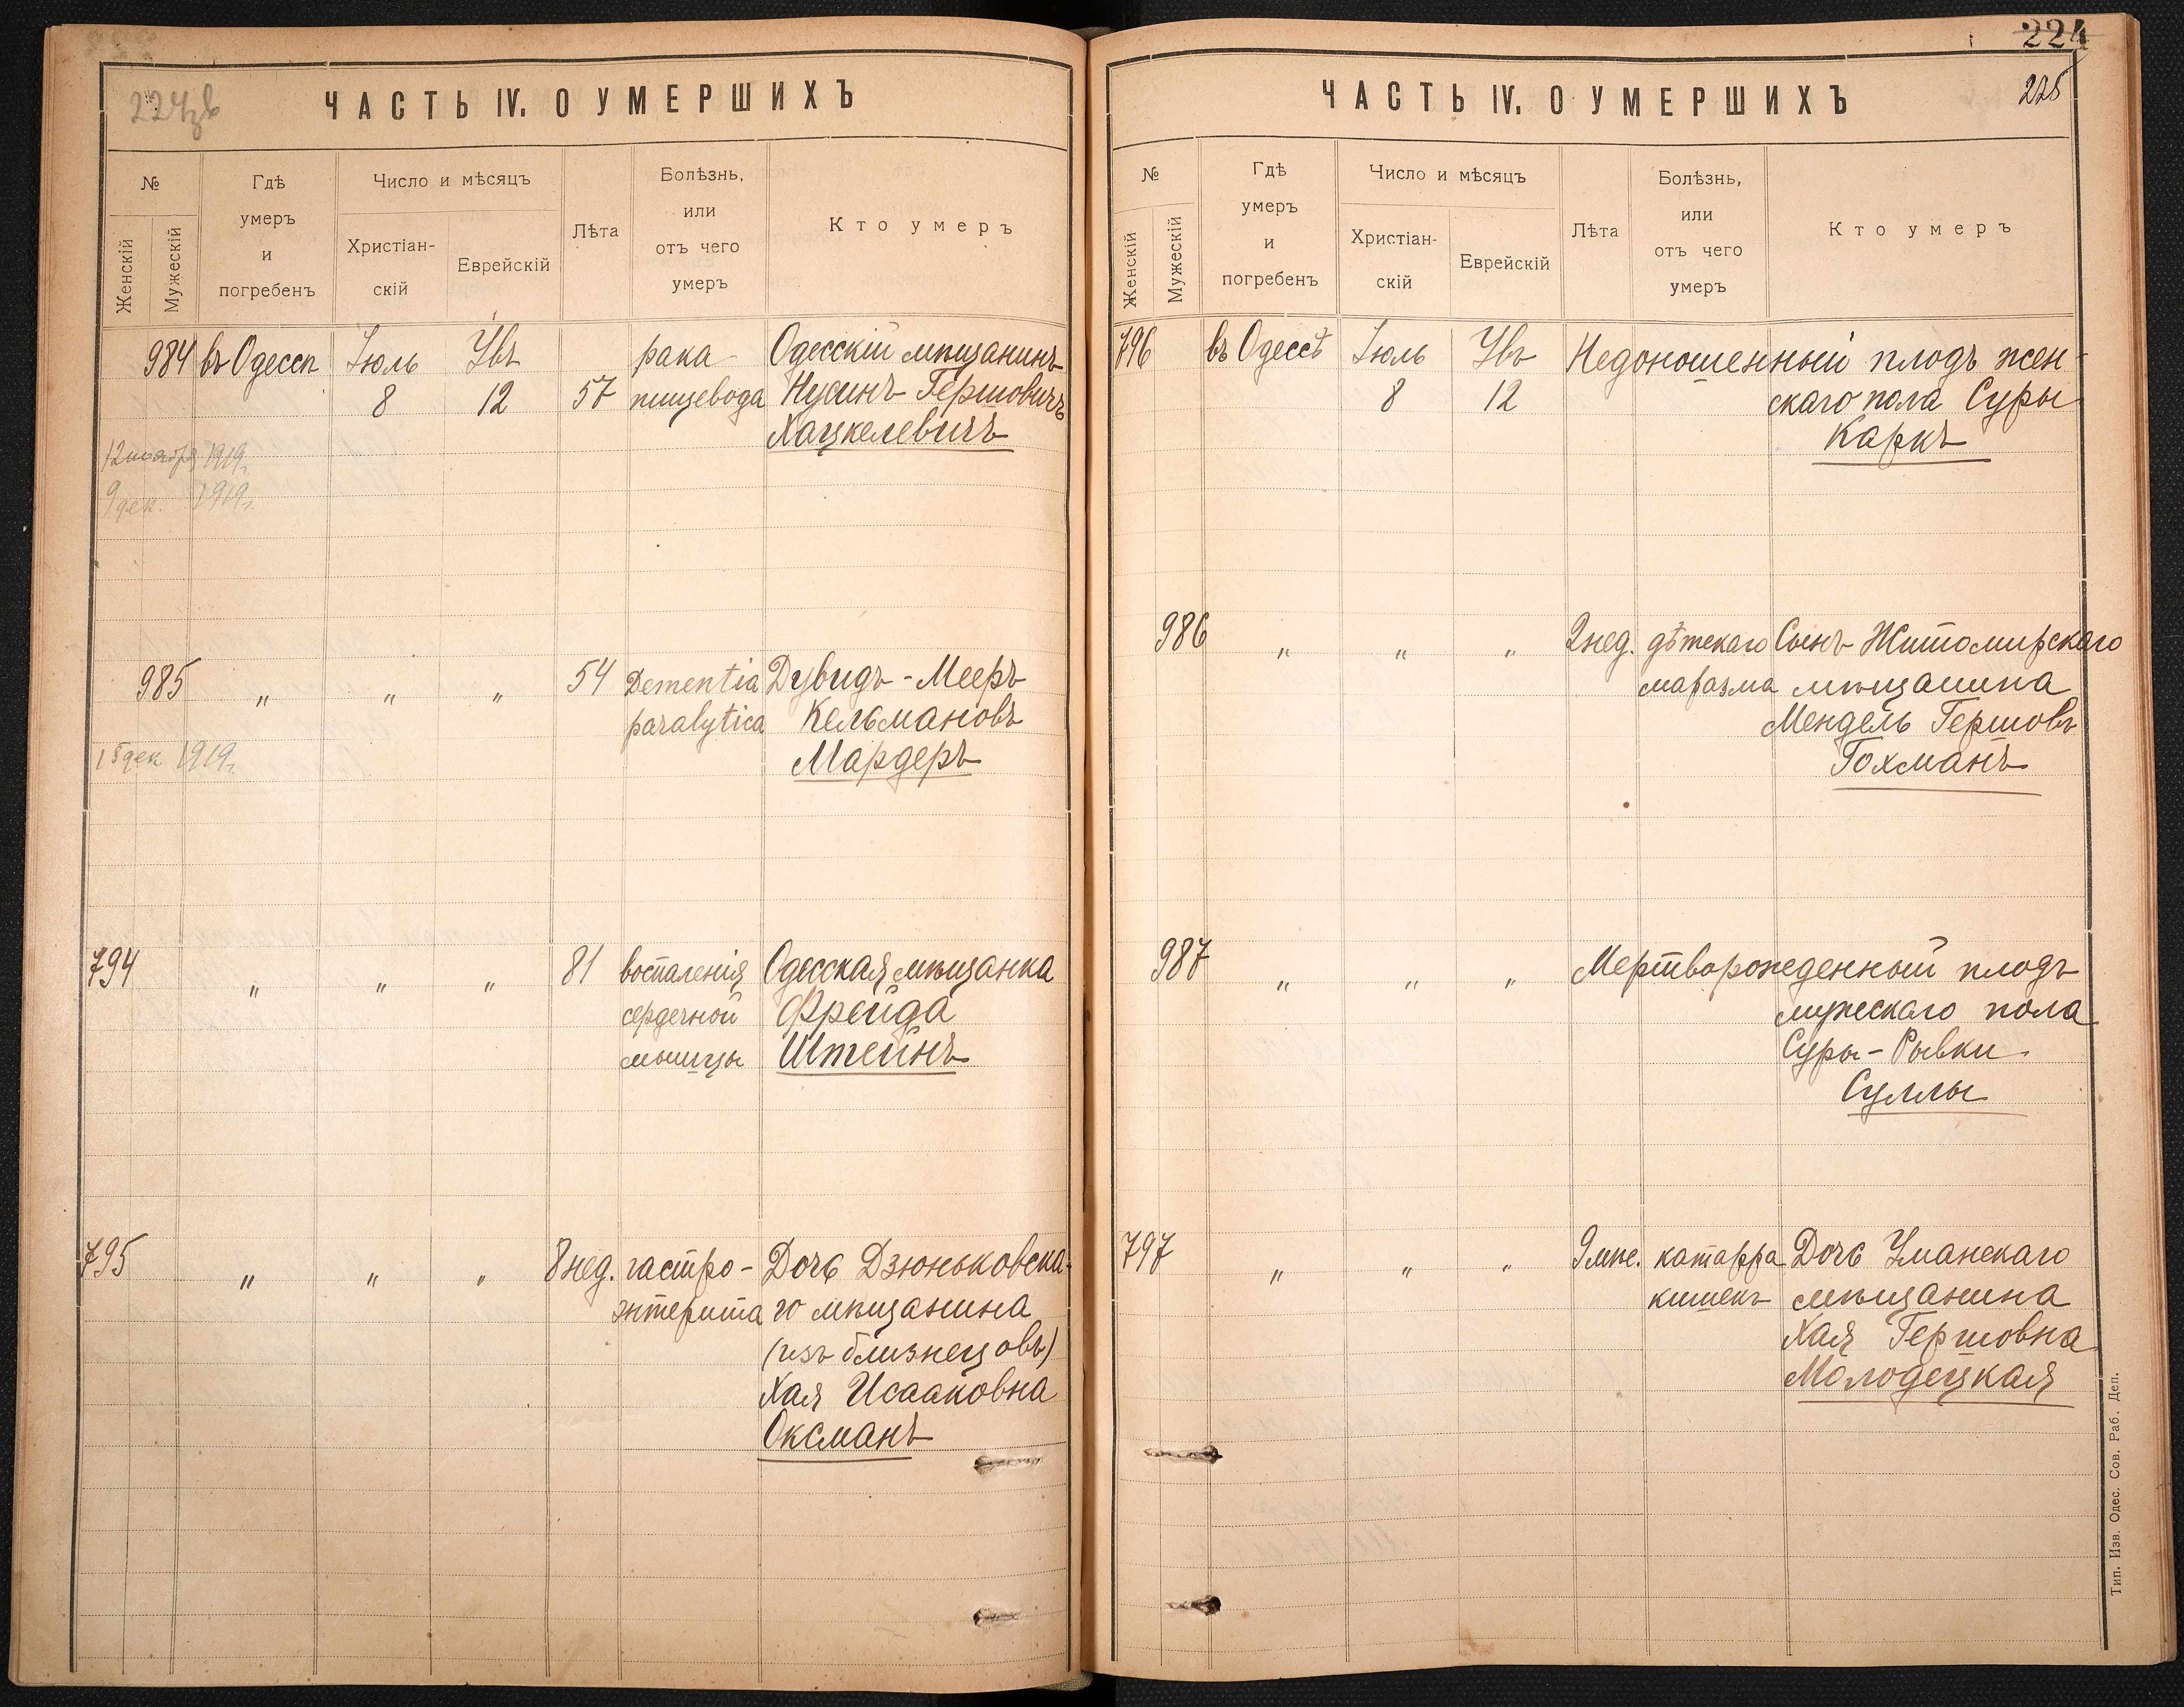 224зв
ЧАСТЬ IV. О УМЕРШИХЪ
№
Женскій
Мужескій
Гдѣ
умеръ
и
погребенъ
Число и мѣсяцъ
Христіан-
скій
Еврейскій
Лѣта
Болѣзнь,
или
отъ чего
умеръ
Кто умеръ
984 въ Одессѣ Іюль Увъ рака Одесскій мѣщанинъ
8 12 57 пищевода Нусинъ Гершовичъ
Хацкелевичъ
12 1919г.
9 дек. 1919г.
985 " " " 54 Dementia Дувидъ-Мееръ
paralytica Кельмановъ
15 дек 1919г. Мардеръ
794 " " " 81 воспаленія Одесская мѣщанка
сердечной Фрейда
мышцы Штейнъ
795 " " " 8 нед. гастро- Дочь Дзюньковска-
энтерита го мѣщанина
(изъ близнецовъ)
Хая Исааковна
Оксманъ
224
225
ЧАСТЬ IV. О УМЕРШИХЪ
№
Женскій
Мужескій
Гдѣ
умеръ
и
погребенъ
Число и мѣсяцъ
Христіан-
скій
Еврейскій
Лѣта
Болѣзнь,
или
отъ чего
умеръ
Кто умеръ
796 въ Одессѣ Іюль Увъ Недоношенный плодъ жен-
8 12 скаго пола Суры
Каркъ
986 " " " 2 нед. дѣтскаго Сынъ Житомирскаго
маразма мѣщанина
Мендель Гершовъ
Гохманъ
987 " " " Мертворожденный плодъ
мужескаго пола
Суры-Рывки
Суллы
797 " " " 9 мѣс. катарра Дочь Уманскаго
кишекъ мѣщанина
Хая Гершовна
Молодецкая
Тип. Изв. Одес. Сов. Раб. Деп.